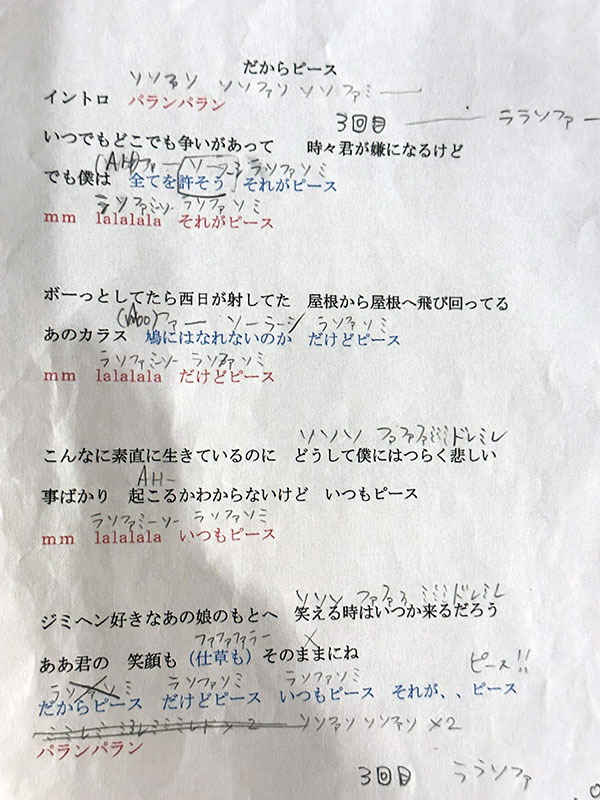 だからピース
ソソファソ ソソファソ ソソファミー
イントロ パランパラン
3回目 ― ララソファー
いつでもどこでも争いがあって 時々君が嫌になるけど
(AH)ファー ソーラーシ ラソファソミ
でも僕は 全てを許そう それがピース
ラソファミーソー ラソファソミ
mm lalalala それがピース
ボーっとしてたら西日が射してた 屋根から屋根へ飛び回ってる
ファー ソーラーシ ラソファソミ
あのカラス 鳩にはなれないのか だけどピース
ラソファミーソー ラソファソミ
mm lalalala だけどピース
ソソソソ ファファファミミミドレミレ
こんなに素直に生きているのに どうして僕にはつらく悲しい
AH-
事ばかり 起こるかわからないけど いつもピース
ラソファミーソー ラソファソミ
mm lalalala いつもピース
ソソソ ファファファ ミミミドレミレ
ジミヘン好きなあの娘のもとへ 笑える時はいつか来るだろう
ファファファラー
ああ君の 笑顔も(仕草も)そのままにね
ピース!!
ラソファソミ ラソファソミ ラソファソミ
だからピース だけどピース いつもピース それが、、ピース
ソソファソ ソソファソ ×2
パランパラン
3回目 ララソファ